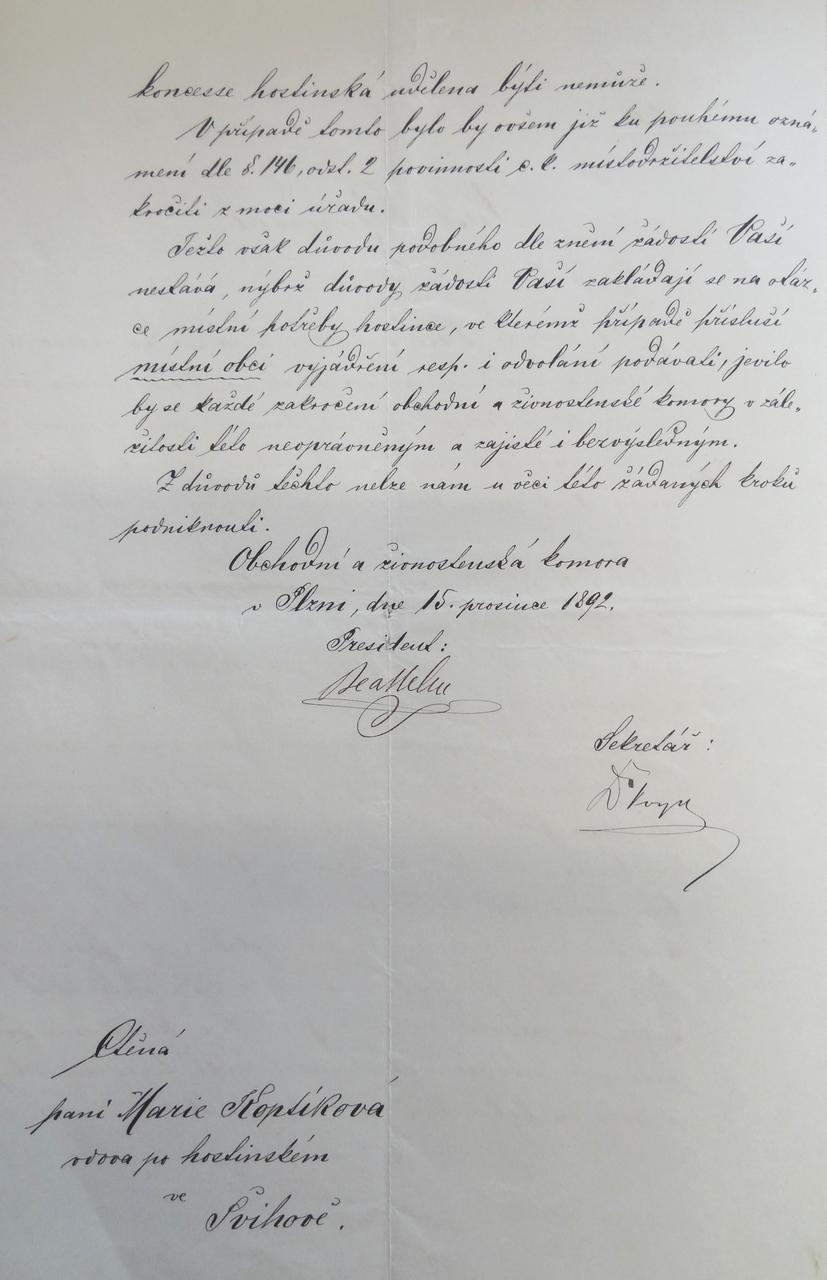 koncesse hostinská udělena býti nemůže.
V případě tomto bylo by ovšem již ku pouhému ozná-
mení dle §. 146, odst. 2 povinností c. k. místodržitelství za-
kročiti z moci úřadu.
Ježto však důvodu podobného dle znění žádosti Vaší
nestává, nýbrž důvody žádosti Vaší zakládají se na otáz-
ce místní potřeby hostince, ve kterémž případě přísluší
místní obci vyjádření resp. i odvolání podávati, jevilo
by se každé zakročení obchodní a živnostenské komory v zále-
žitosti této neoprávněným a zajisté i bezvýsledným.
Z důvodů těchto nelze nám u věci této žádaných kroků
podniknouti.
Obchodní a živnostenská komora
v Plzni, dne 15. prosince 1892.
President:
Sekretář:
Ctěná
paní Marie Koptíková
vdova po hostinském
ve
Švihově.